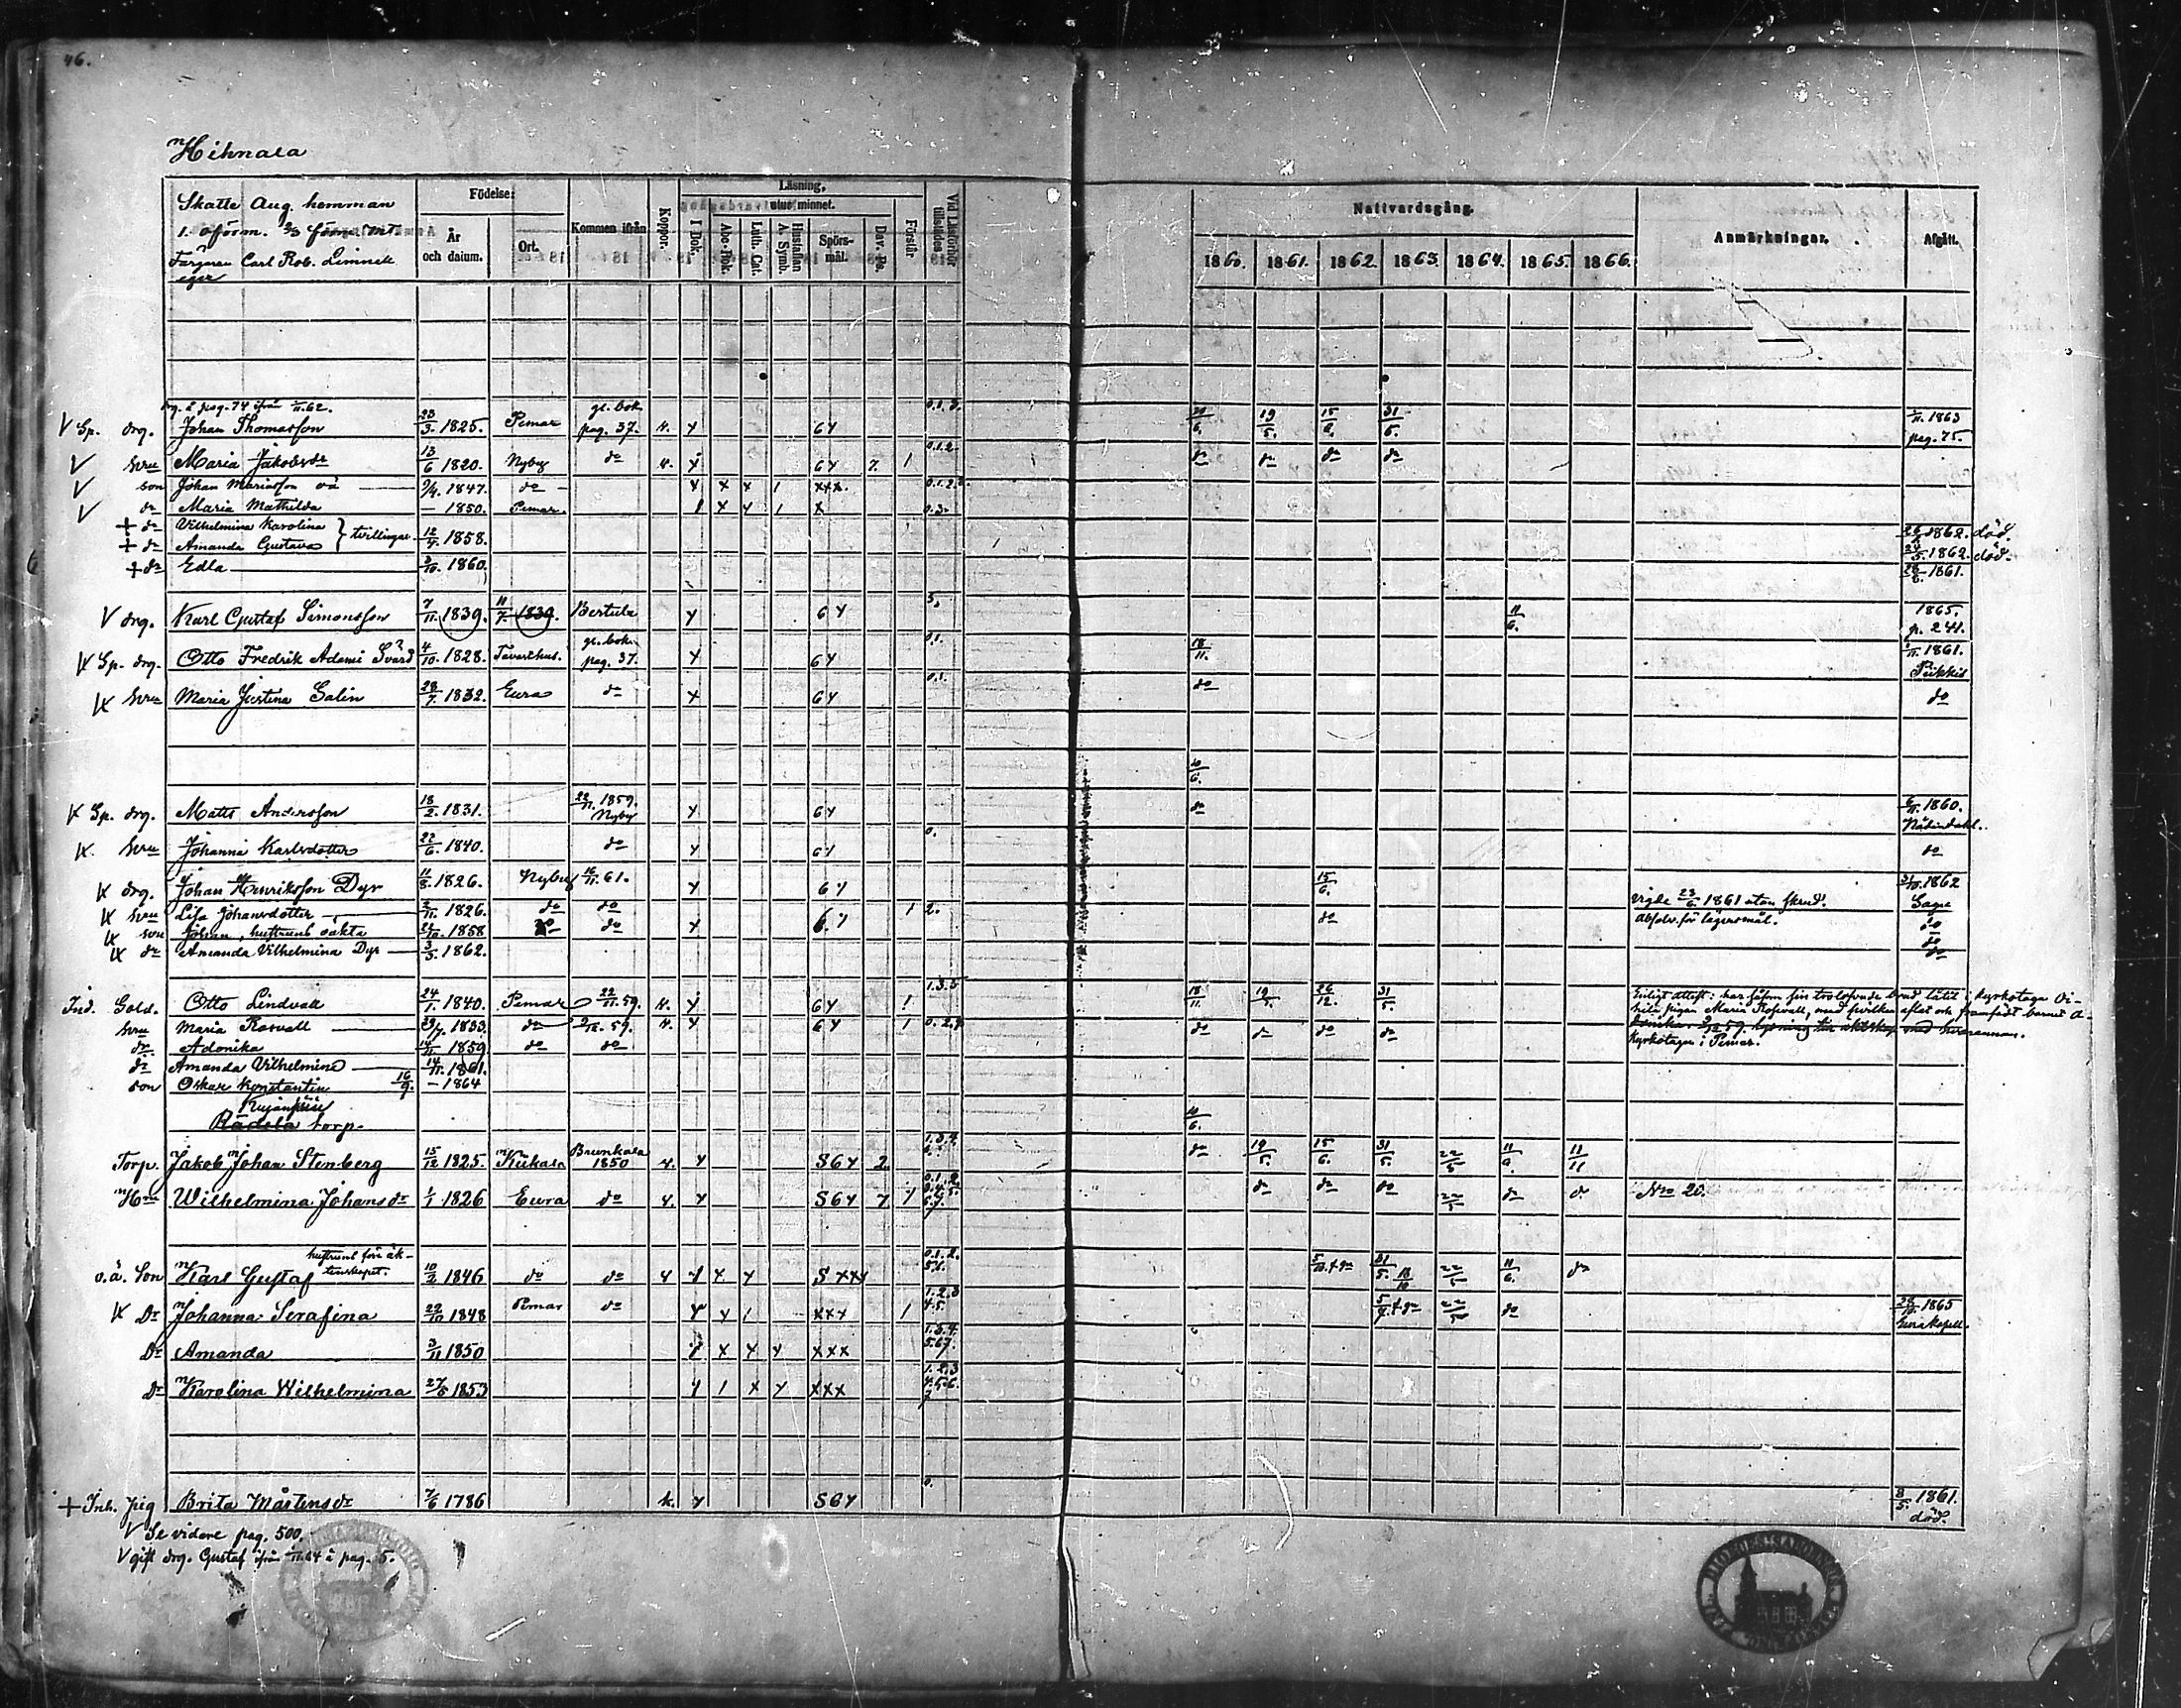 46.
Hihnala
Skatte Aug. hemman
1. oförm. 2/3 förm. mt.
Färgaren Carl Rob. Limnell
eger
Födelse:
År och datum.
Ort.
Kommen ifrån
Koppor.
Läsning,
I Bok.
utur minnet.
Abc-Bok.
Luth. Cat.
Hustaflan A. Symb.
Spörsmål.
Dav. Ps.
Förstår
Vid Läsförhör tillstädes
Nattvardsgång.
1860. 1861. 1862. 1863. 1864. 1865. 1866.
Anmärkningar.
Afgått.
pag. 74 ifrån 1/11.62.
V Sp. drg. Johan Thomasson 23/3 1825. Pemar gl. bok pag. 37. K. Y 6Y 0.1.3. 19/5. 15/6. 31/5. 1/11. 1863 pag. 75.
V hru Maria Jakobsdr 13/6 1820. Nyby do K. Y 6Y 7. 1 0.1.2. do do do do
V son Johan Mariasson oä 9/4. 1847. do Y X X 1 XXX. 0.1.2.
V dr Maria Mathilda — 1850. Pemar. X Y 1 X 0.3.
+ dr Vilhelmina Karolina } tvillingar 12/4 1858. 1862. död.
+ dr Amanda Gustava 24/5. 1862. död.
+ dr Edla 3/10. 1860. 28/8. 1861.
V drg. Karl Gustaf Simonsson 7/11. 1839. 11/7. 1839. Bertula Y 6Y 5. 11/6. 1865. p. 241.
K Sp. drg. Otto Fredrik Adami Svärd 4/10. 1828. Tavasthus. gl. bok. pag. 37. Y 6Y 0.1. 18/11. 1/11. 1861. Piikkis
K hru Maria Justina Salin 28/7. 1832. Eura do Y 6Y 0.1. do do
10/6.
K Sp. drg. Matts Andersson 18/2. 1831. 22/11. 1859. Nyby Y 6Y do 6/11. 1860. Nådendahl.
K hru Johanna Karlsdotter 22/6. 1840. do Y 6Y 0. do
K drg. Johan Henriksson Dyr 11/8. 1826. Nyby 16/11. 61. Y 6Y 15/6. 31/10. 1862 Sagu
K hru Lisa Johansdotter 2/11. 1826. do do 1 2. do vigde 23/6. 1861 utan skrud. do
K son Johan, hustruns oäkta 1858 do do Y 6.Y absolv. för lägersmål. do
K dr Amanda Vilhelmina Dyr 3/5. 1862. do
Ind. Sold. Otto Lindvall 24/1. 1840. Pemar 22/11. 59. K. Y 6Y 1 1.3.5 18/11. 19/5. 26/12. 31/5. Enligt attest: har såsom sin trolofvade brud låtit kyrkotaga
hru Maria Rosvall 1833. do 59. K. Y 6Y 1 0.2.4 do do do do pigan Maria Rosvall, med hvilken aflat och framfödt barnet
dr Adonika 14/11. 1859 do do lysning till äktskap med hvarannan.
dr Amanda Vilhelmina 14/11. 1861. Kyrkotagen i Pemar.
son Oskar Konstantin 16/9. — 1864
Rädila torp. 10/6.
Torp. Jakob Johan Stenberg 15/12 1825. Kukala Brunkala 1850 K. Y S6Y 2 1.3.4. do 19/5. 15/6. 31/5. 22/5 11/6. 11/11
Hru Wilhelmina Johansdr 1/1 1826 Eura do K. Y S6Y 7. 1 do do do 22/5 do do No 20.
hustruns före äktenskapet.
o.ä. Son Karl Gustaf 10/2 1846 do do K Y X Y S XXY 0.1.2. 31/5. 18/10 22/5 11/6. do
K Dr Johanna Serafina 22/10 1848 Pemar do Y Y 1 XXX 1 1.2.3 4.5. 22/5 do 1865 Eura kapell.
Dr Amanda 3/11 1850 Y X Y Y XXX 1.3.4. 5.6.7.
Dr Karolina Wilhelmina 27/5 1853 Y 1 X Y XXX 1.2.3 4.5.6.
0.
+ Inh. pig Brita Mårtensdr 7/6 1786 K. Y S6Y 8/5. 1861. död.
V Se vidare pag. 500.
V gift drg. Gustaf ifrån 1/11. 64 å pag. 5.